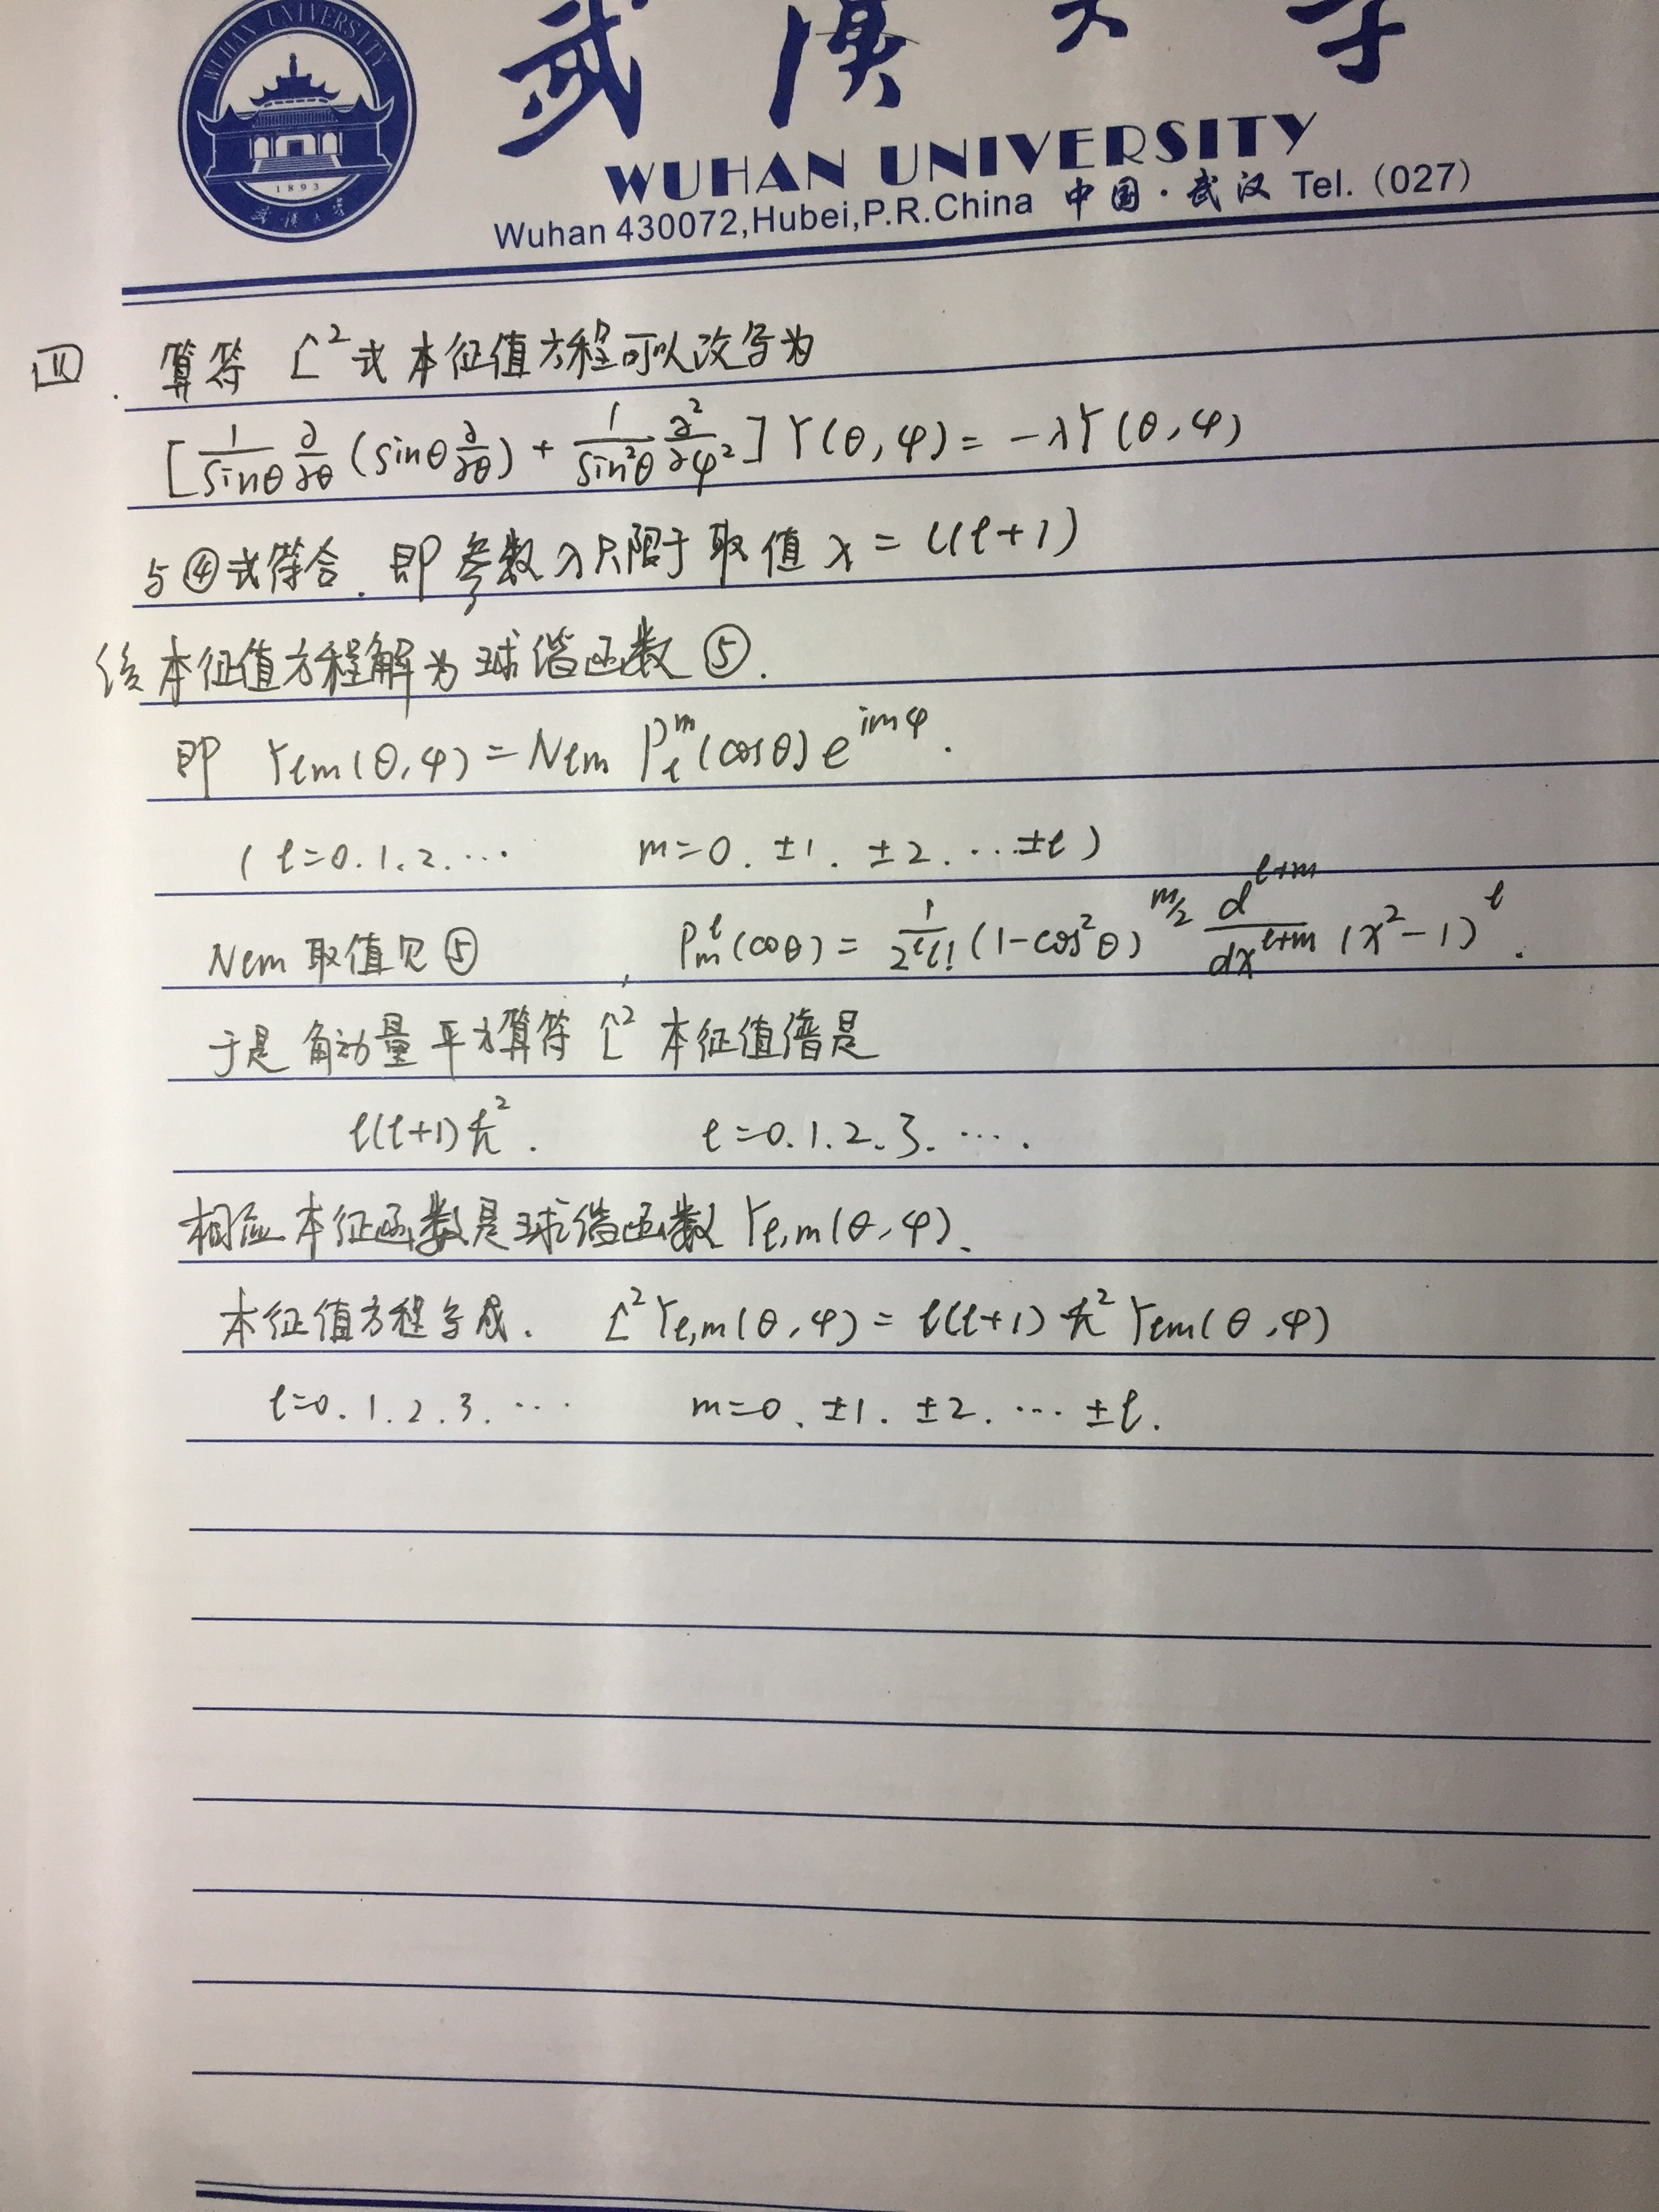 WUHAN UNIVERSITY
1893
武汉大学
武汉大学
WUHAN UNIVERSITY
Wuhan 430072,Hubei,P.R.China 中国·武汉 Tel. (027)
四. 算符 L̂² 式本征值方程可以改写为
[1/sinθ ∂/∂θ (sinθ ∂/∂θ) + 1/sin²θ ∂²/∂φ²] Y(θ,φ) = -λY(θ,φ)
与④式符合. 即参数λ只限于取值 λ = l(l+1)
该本征值方程解为球谐函数⑤.
即 Ylm(θ,φ) = Nlm Pₗᵐ(cosθ) e^{imφ}.
( l=0.1.2.… m=0. ±1. ±2. … ±l )
Nlm 取值见⑤ , Pₘˡ(cosθ) = 1/(2ˡl!) (1-cos²θ)^{m/2} d^{l+m}/dx^{l+m} (x²-1)ˡ.
于是角动量平方算符 L̂² 本征值谱是
l(l+1)ħ². l=0.1.2.3.….
相应本征函数是球谐函数 Yl,m(θ,φ).
本征值方程写成. L̂²Yl,m(θ,φ) = l(l+1)ħ²Ylm(θ,φ)
l=0.1.2.3.… m=0. ±1. ±2. … ±l.